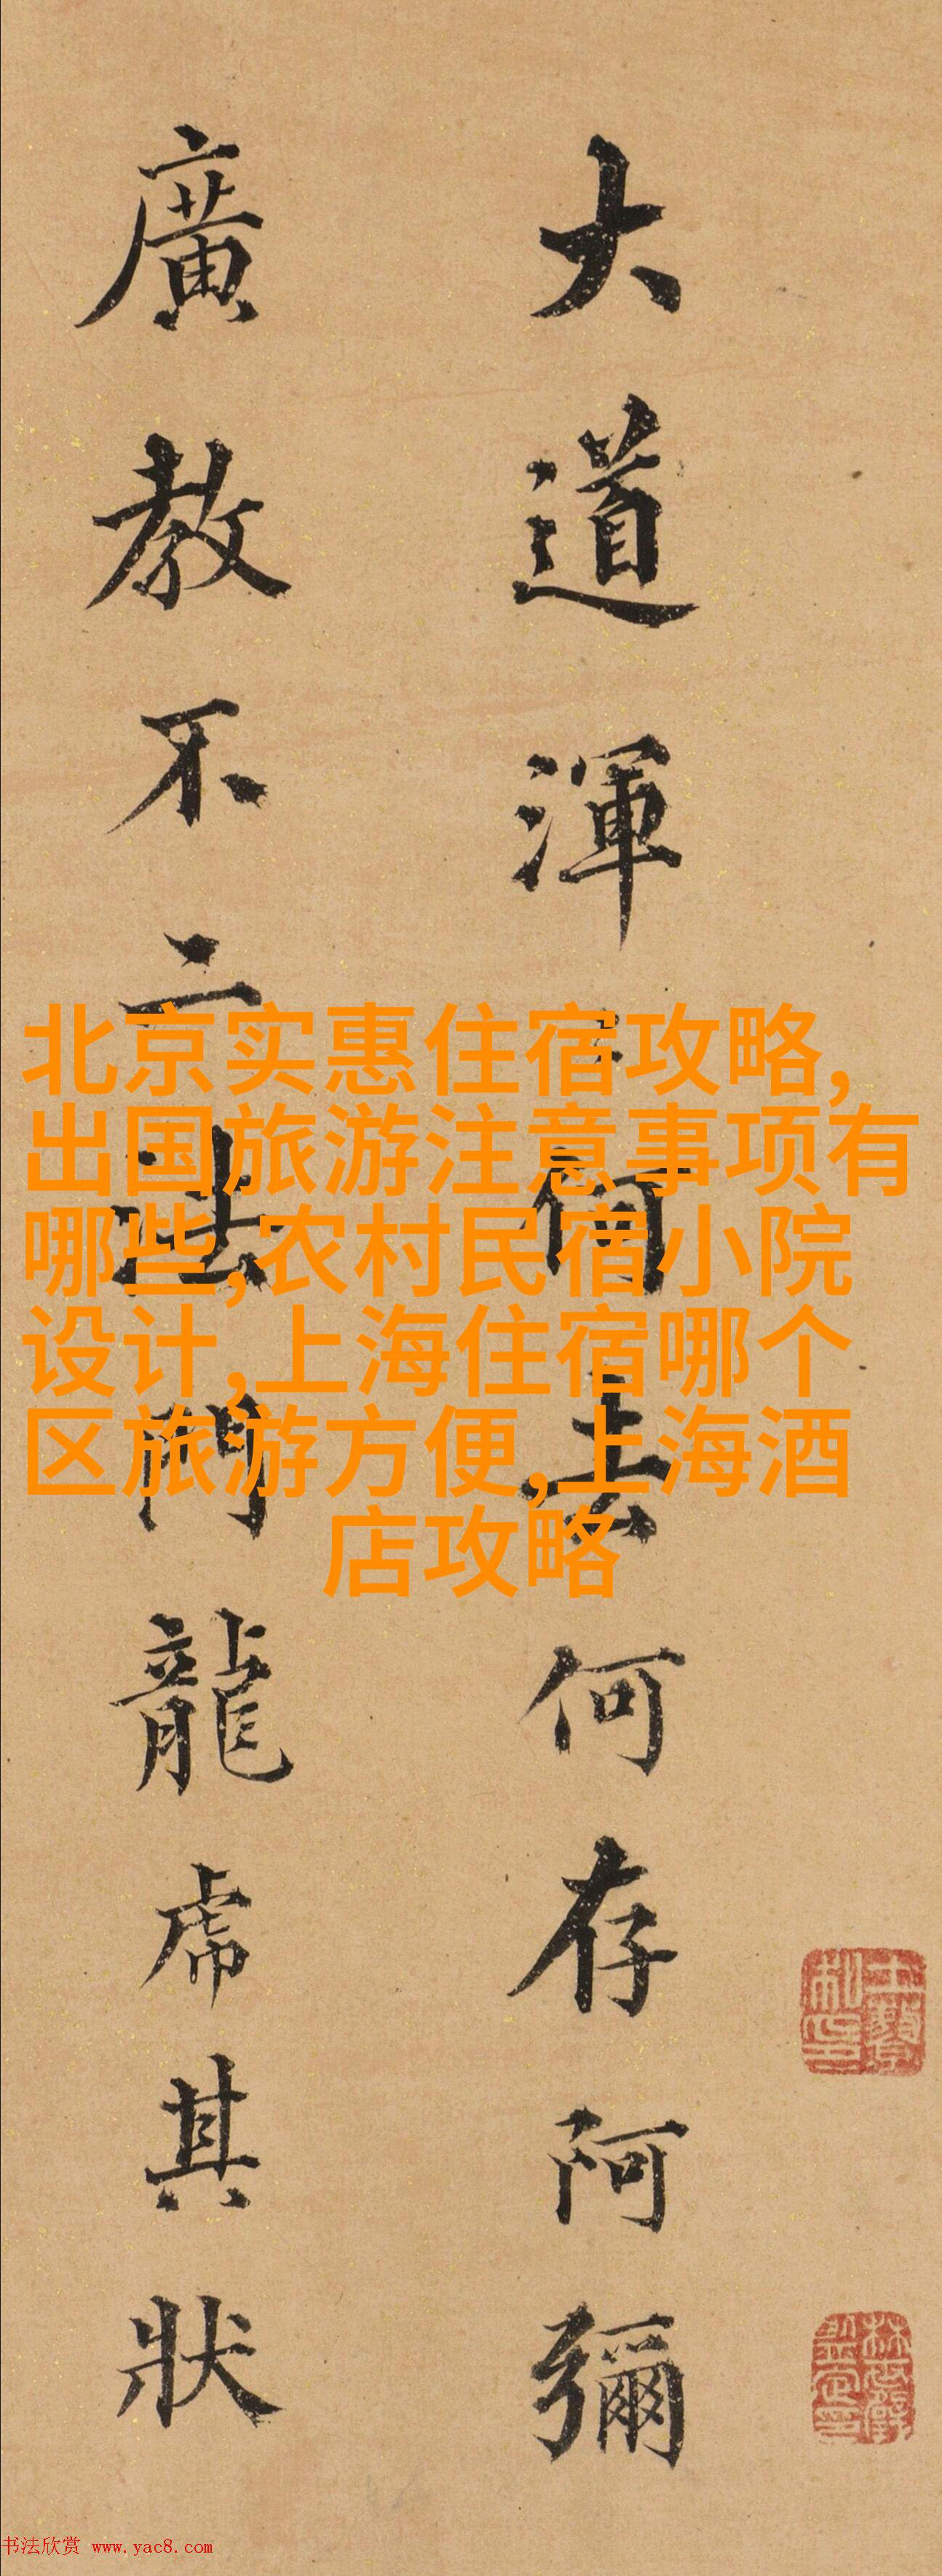 大道渾淪何去何存阿彌
廣教不二法門龍虎其狀
北京实惠住宿攻略,
出国旅游注意事项有
哪些,农村民宿小院
设计,上海住宿哪个
区旅游方便,上海酒
店攻略
书法欣赏 www.yac8.com